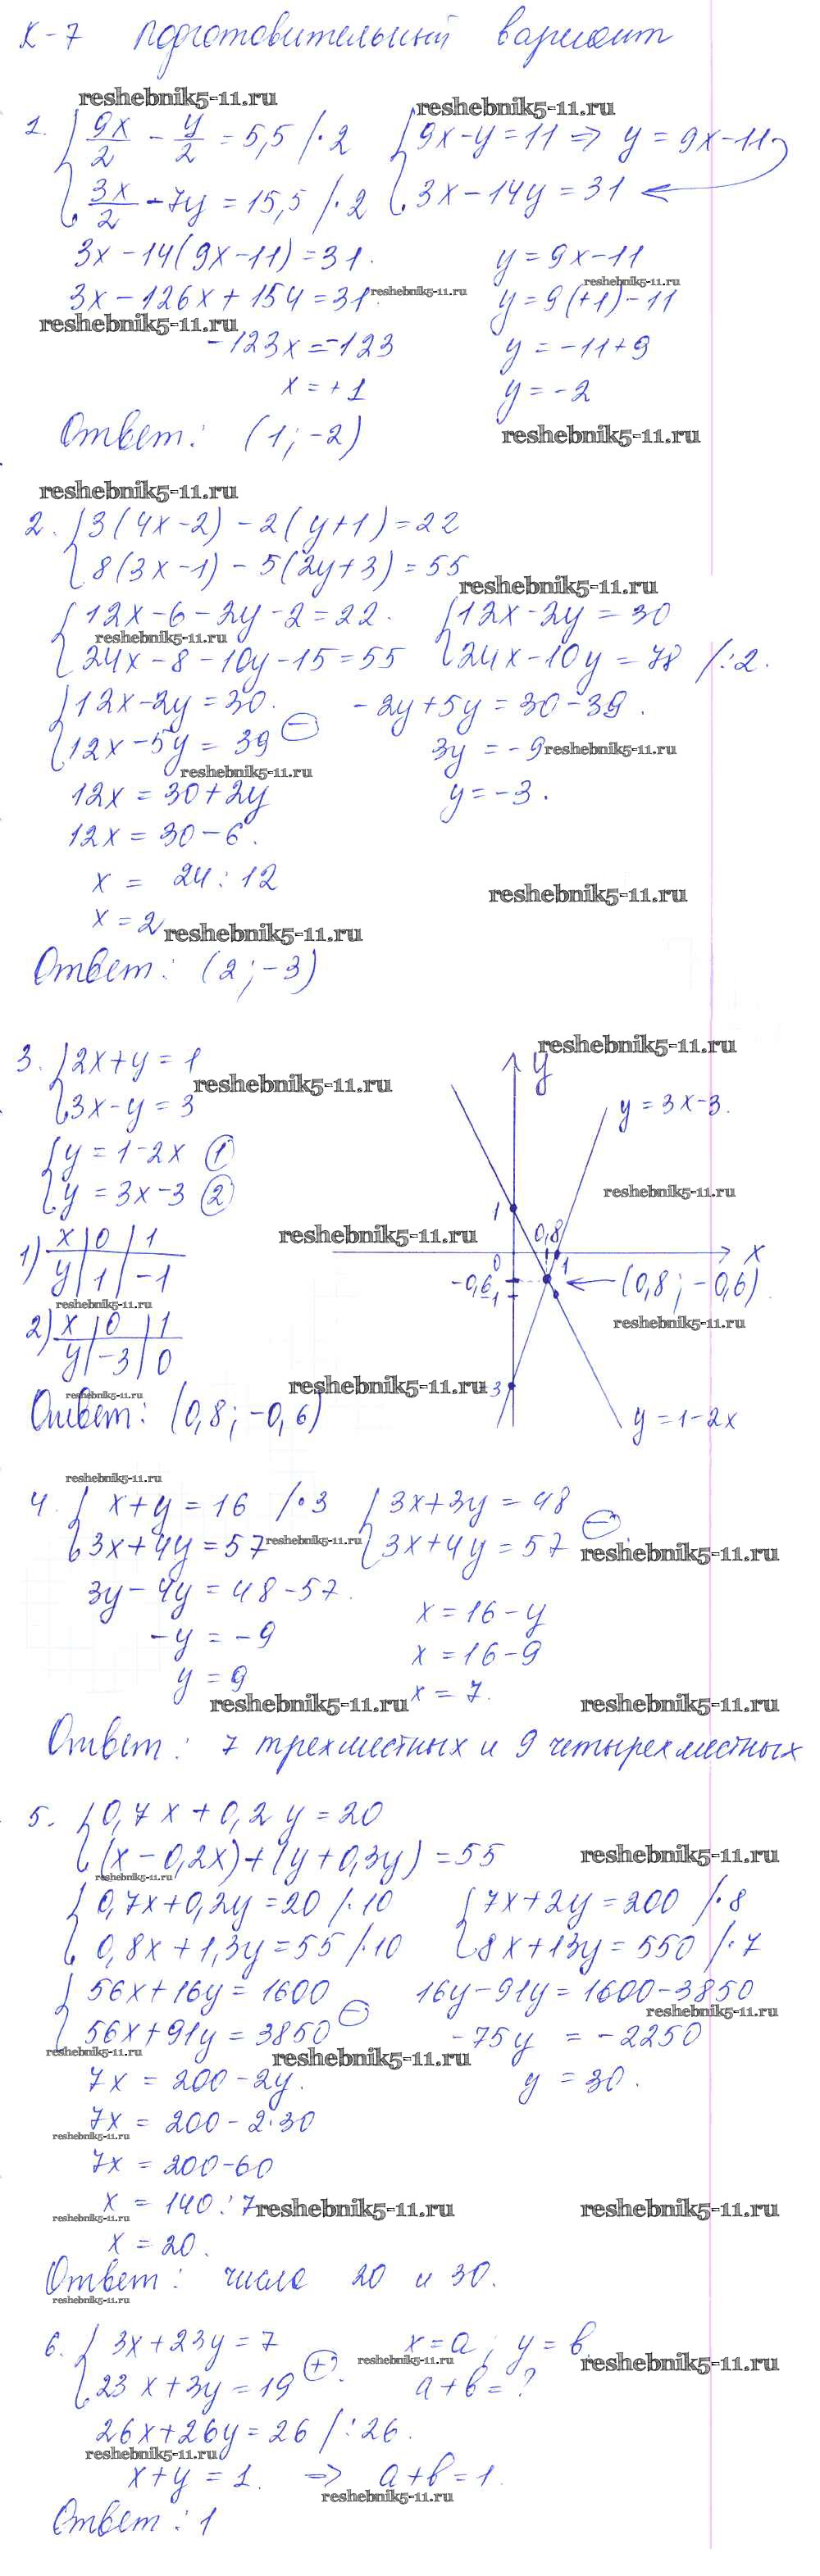 К-7 подготовительный вариант
reshebnik5-11.ru
reshebnik5-11.ru
1. { 9x/2 - y/2 = 5,5 /·2 { 9x-y=11 ⇒ y = 9x-11
3x/2 - 7y = 15,5 /·2 3x-14y = 31 ←
3x-14(9x-11)=31. y = 9x-11
reshebnik5-11.ru
3x-126x+154=31. reshebnik5-11.ru y=9(+1)-11
reshebnik5-11.ru
-123x=-123 y = -11+9
x=+1 y=-2
Ответ: (1;-2)
reshebnik5-11.ru
reshebnik5-11.ru
2. { 3(4x-2)-2(y+1)=22
8(3x-1)-5(2y+3)=55
reshebnik5-11.ru
{ 12x-6-2y-2=22. { 12x-2y=30
reshebnik5-11.ru
24x-8-10y-15=55 24x-10y=78 /:2.
{ 12x-2y=30. -2y+5y=30-39.
12x-5y=39 (-) 3y=-9 reshebnik5-11.ru
reshebnik5-11.ru
12x=30+2y y=-3.
12x=30-6.
x = 24:12
reshebnik5-11.ru
x=2 reshebnik5-11.ru
Ответ: (2;-3)
reshebnik5-11.ru
3. { 2x+y=1 y
reshebnik5-11.ru
3x-y=3 y=3x-3.
{ y=1-2x (1)
y=3x-3 (2) reshebnik5-11.ru
1
1) x | 0 | 1 reshebnik5-11.ru 0,8 x
0 1
y | 1 | -1 -0,6 ← (0,8;-0,6)
-1
reshebnik5-11.ru
reshebnik5-11.ru
2) x | 0 | 1
y | -3 | 0
reshebnik5-11.ru 3
reshebnik5-11.ru
Ответ: (0,8;-0,6) y=1-2x
reshebnik5-11.ru
4. { x+y=16 /·3 { 3x+3y=48
3x+4y=57 reshebnik5-11.ru 3x+4y=57 (-)
reshebnik5-11.ru
3y-4y=48-57.
x=16-y
-y=-9
x=16-9
y=9
reshebnik5-11.ru x=7. reshebnik5-11.ru
Ответ: 7 трехместных и 9 четырехместных
5. { 0,7x+0,2y=20
(x-0,2x)+(y+0,3y)=55 reshebnik5-11.ru
reshebnik5-11.ru
{ 0,7x+0,2y=20 /·10 { 7x+2y=200 /·8
0,8x+1,3y=55 /·10 8x+13y=550 /·7
{ 56x+16y=1600 16y-91y=1600-3850
reshebnik5-11.ru
56x+91y=3850 (-) -75y = -2250
reshebnik5-11.ru
reshebnik5-11.ru
7x=200-2y. y=30.
7x=200-2·30
reshebnik5-11.ru
7x=200-60
x=140:7 reshebnik5-11.ru reshebnik5-11.ru
reshebnik5-11.ru
x=20.
Ответ: числа 20 и 30.
reshebnik5-11.ru
6. { 3x+23y=7 x=a; y=b
reshebnik5-11.ru reshebnik5-11.ru
23x+3y=19 (+). a+b=?
26x+26y=26 /:26.
reshebnik5-11.ru
x+y=1. ⇒ a+b=1.
reshebnik5-11.ru
Ответ: 1